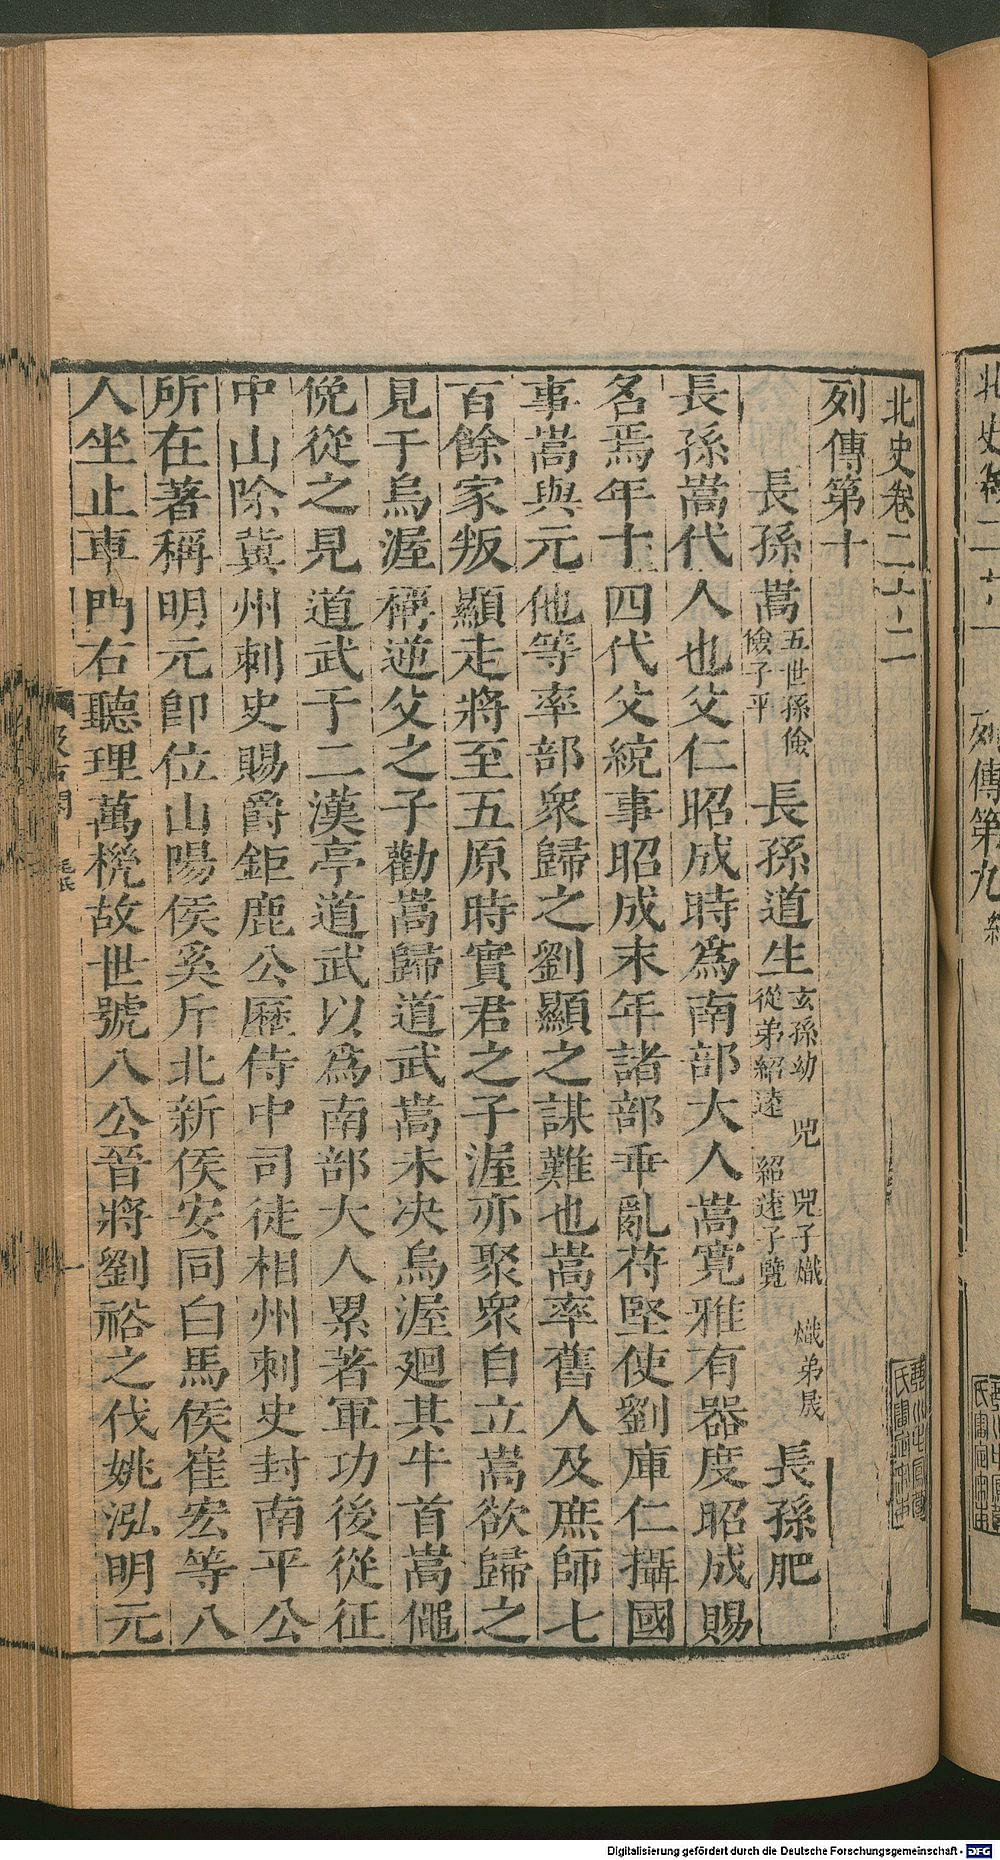 北史卷二十二
列傳第十
長孫嵩 五世孫儉 儉子平 長孫道生 玄孫幼 兕 兕子熾 熾弟晟 從弟紹遠 紹遠子覽 長孫肥
長孫嵩代人也父仁昭成時爲南部大人嵩寛雅有器度昭成賜
名焉年十四代父統事昭成末年諸部乖亂苻堅使劉庫仁攝國
事嵩與元他等率部衆歸之劉顯之謀難也嵩率舊人及庶師七
百餘家叛顯走將至五原時實君之子渥亦聚衆自立嵩欲歸之
見于烏渥稱逆父之子勸嵩歸道武嵩未決烏渥廻其牛首嵩僶
俛從之見道武于二漢亭道武以爲南部大人累著軍功後從征
中山除冀州刺史賜爵鉅鹿公歷侍中司徒相州刺史封南平公
所在著稱明元卽位山陽侯奚斤北新侯安同白馬侯崔宏等八
人坐止車門右聽理萬機故世號八公晉將劉裕之伐姚泓明元
一
列傳第九
Digitalisierung gefördert durch die Deutsche Forschungsgemeinschaft - DFG